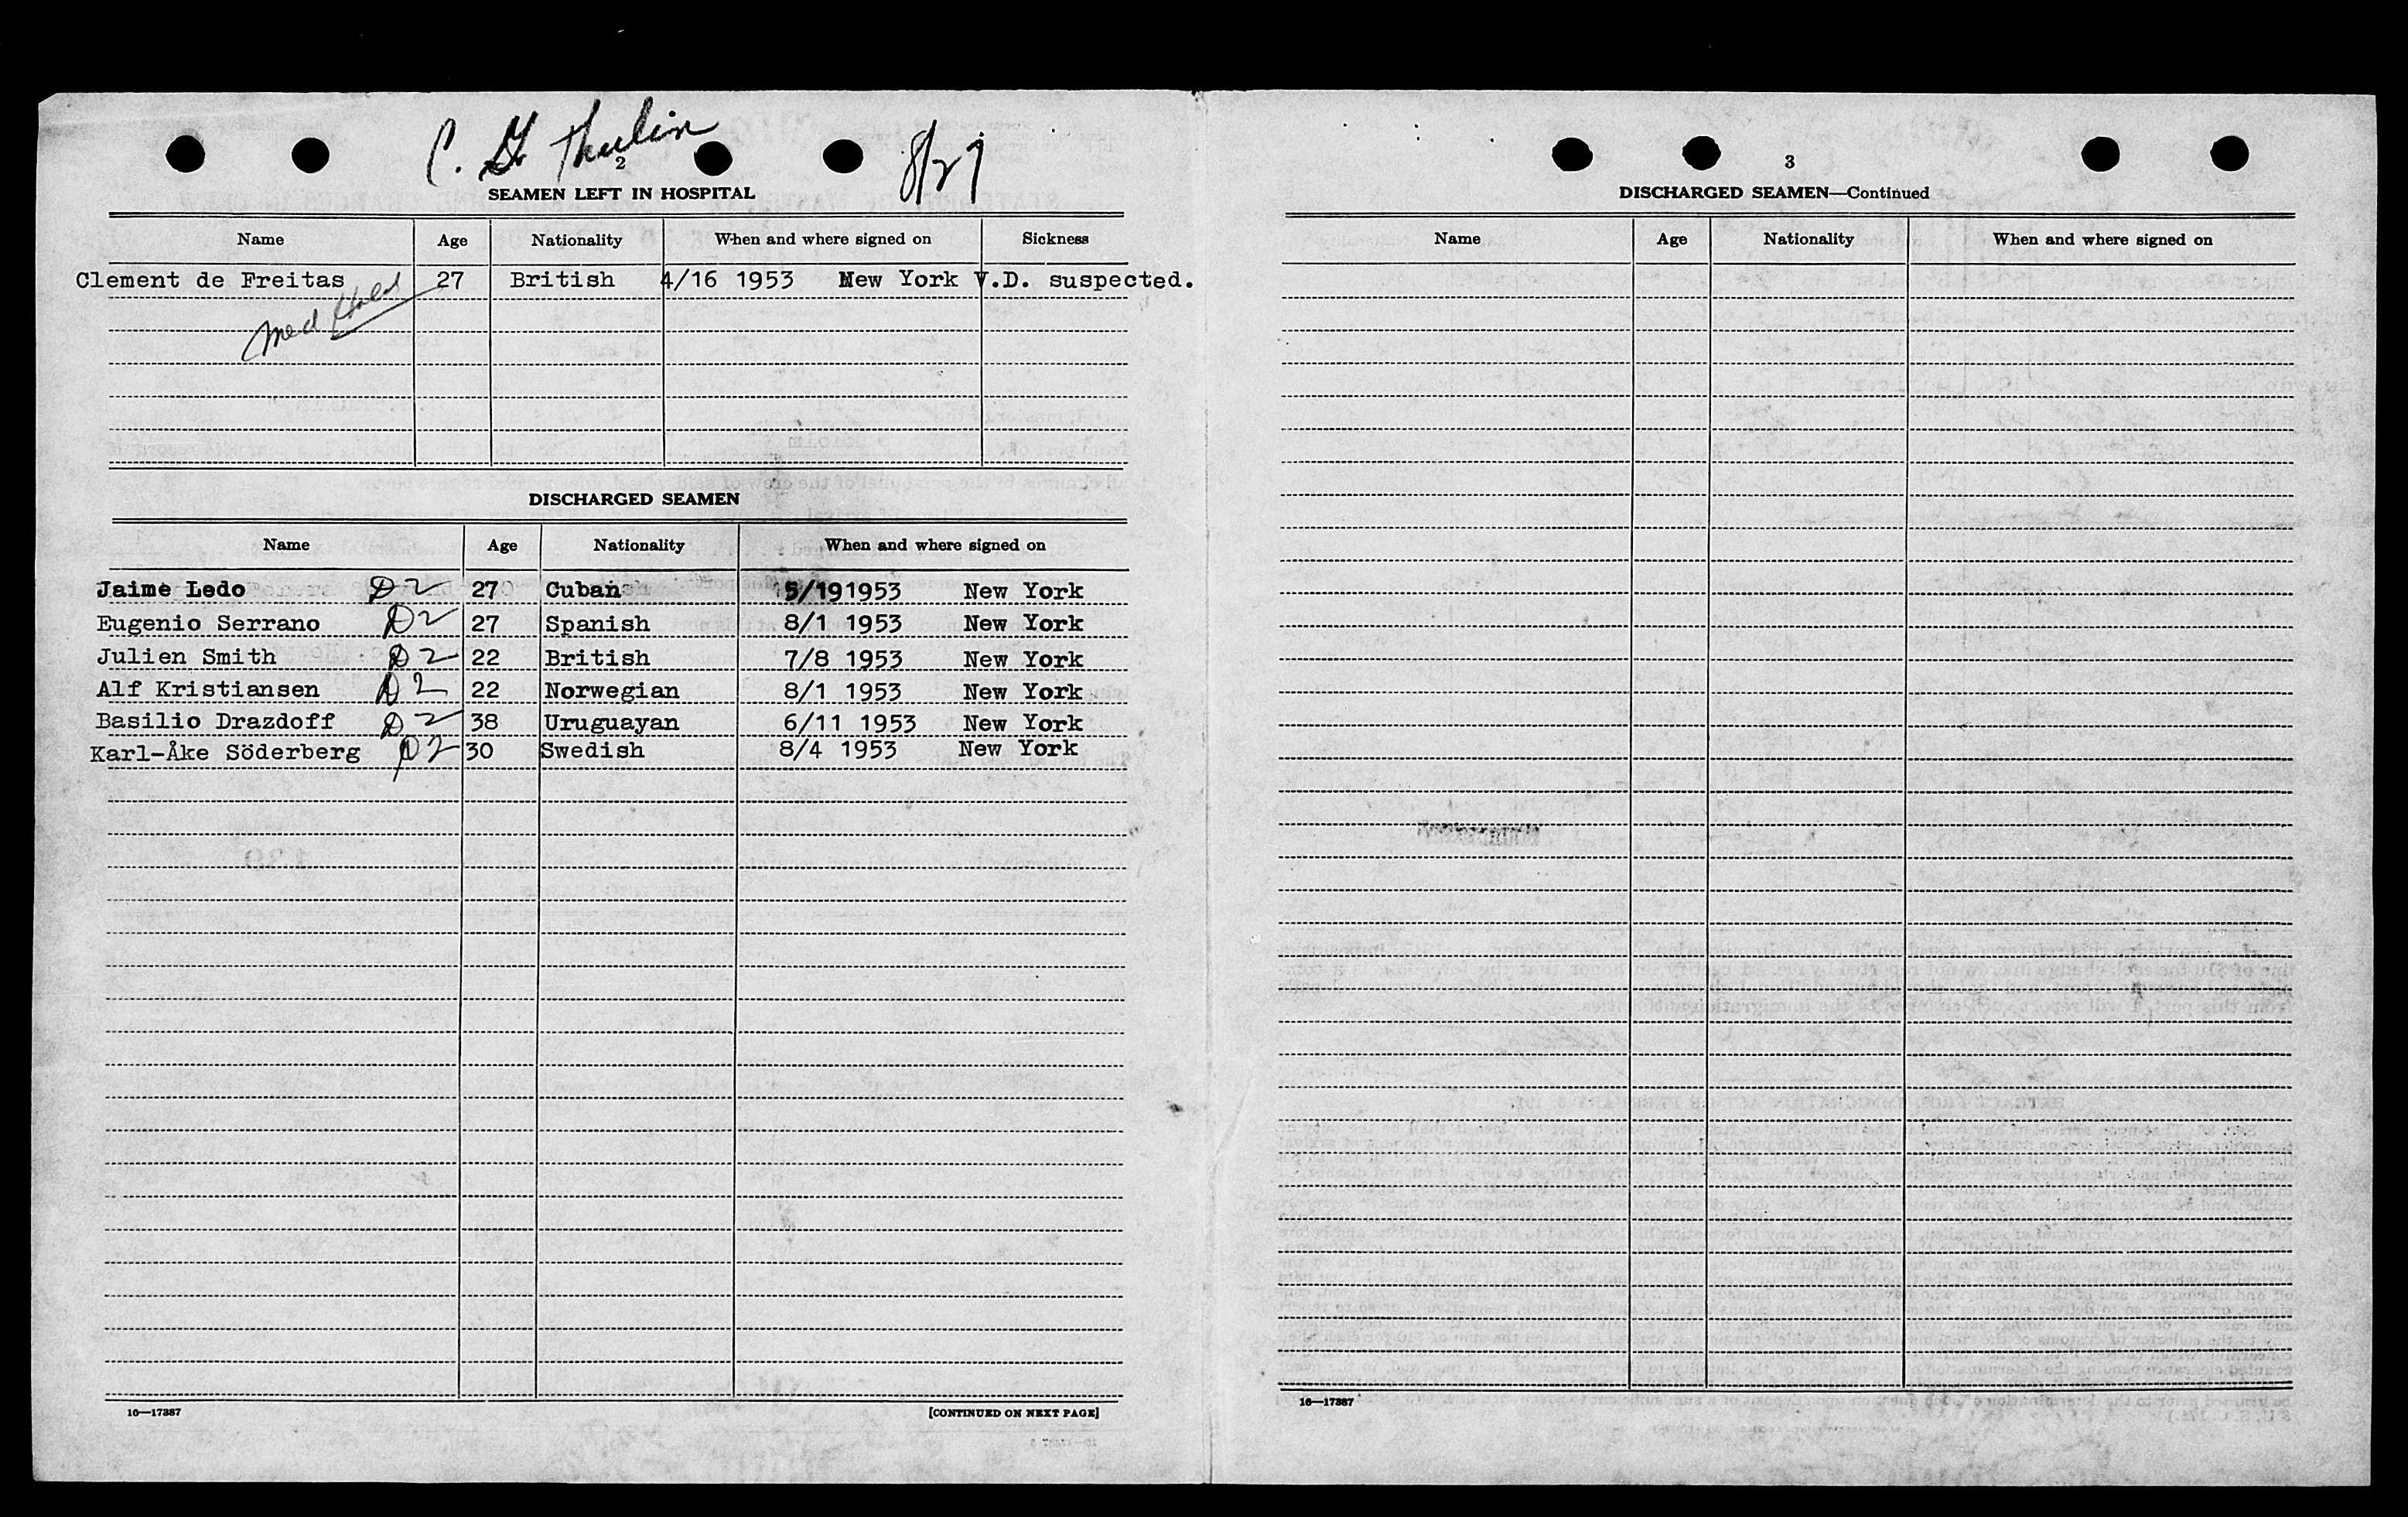 C. G. Thulin 8/27
2
SEAMEN LEFT IN HOSPITAL
Name Age Nationality When and where signed on Sickness
Clement de Freitas 27 British 4/16 1953 New York V.D. suspected.
Med Hold
DISCHARGED SEAMEN
Name Age Nationality When and where signed on
Jaime Ledo D2 27 Cuban 5/19 1953 New York
Eugenio Serrano D2 27 Spanish 8/1 1953 New York
Julien Smith D2 22 British 7/8 1953 New York
Alf Kristiansen D2 22 Norwegian 8/1 1953 New York
Basilio Drazdoff D2 38 Uruguayan 6/11 1953 New York
Karl-Åke Söderberg D2 30 Swedish 8/4 1953 New York
16—17387 [CONTINUED ON NEXT PAGE]
3
DISCHARGED SEAMEN—Continued
Name Age Nationality When and where signed on
16—17387